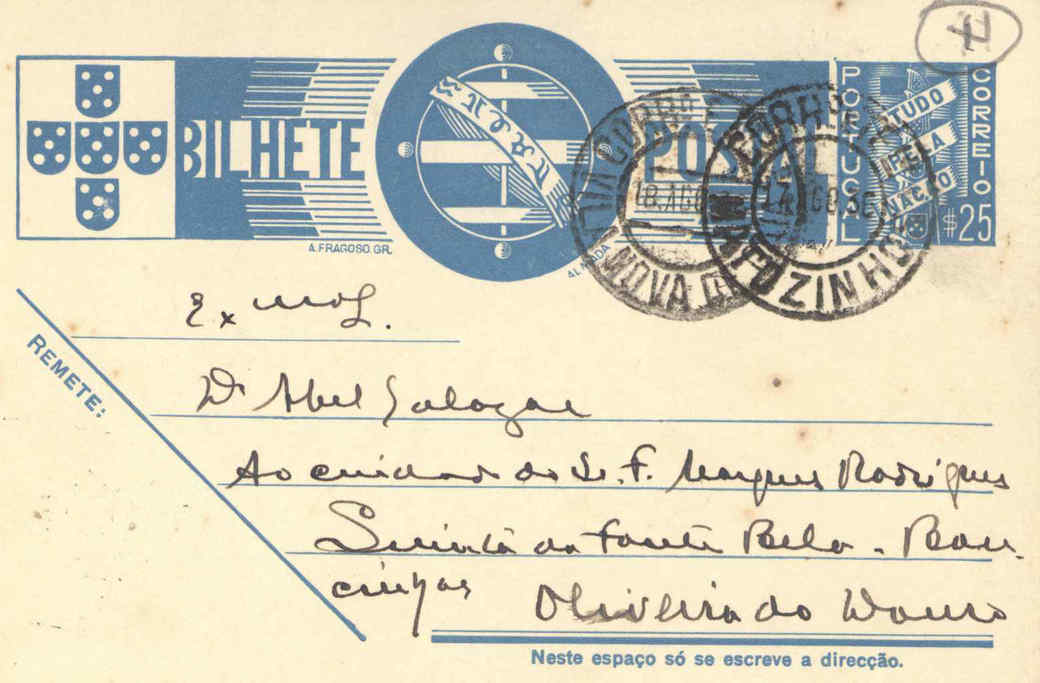 BILHETE POSTAL
PORTUGAL
CORREIO
TUDO
PELA
NAÇÃO
$25
A. FRAGOSO. GR.
ALMADA
18.AGO
17.AGO 36
NOVA D
POZINHO
REMETE:
Ex mo S.
Dr Abel Salazar
Ao cuidado do Sr. F. Marques Rodrigues
Quinta da Fonte Bela - Ban-
cinhas Oliveira do Douro
Neste espaço só se escreve a direcção.